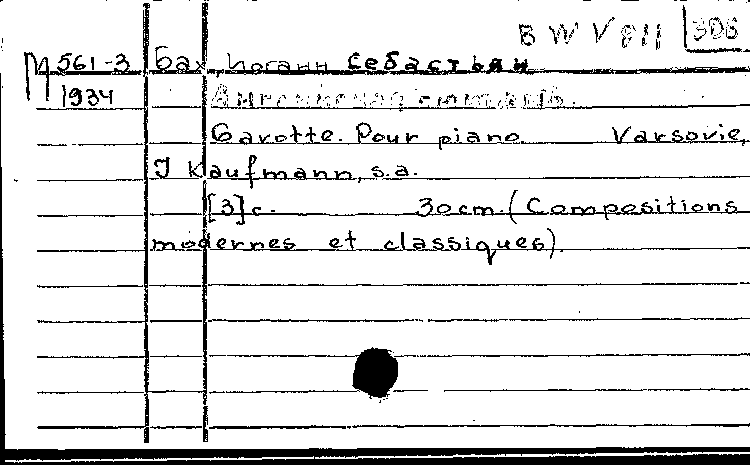 BWV 811 306
М 561-3 Бах, Иоганн Себастьян
1934 Английская сюита.
Gavotte. Pour piano. Varsovie,
J Kaufmann, s.a.
[3] с. 30 cm. (Compositions
modernes et classiques).